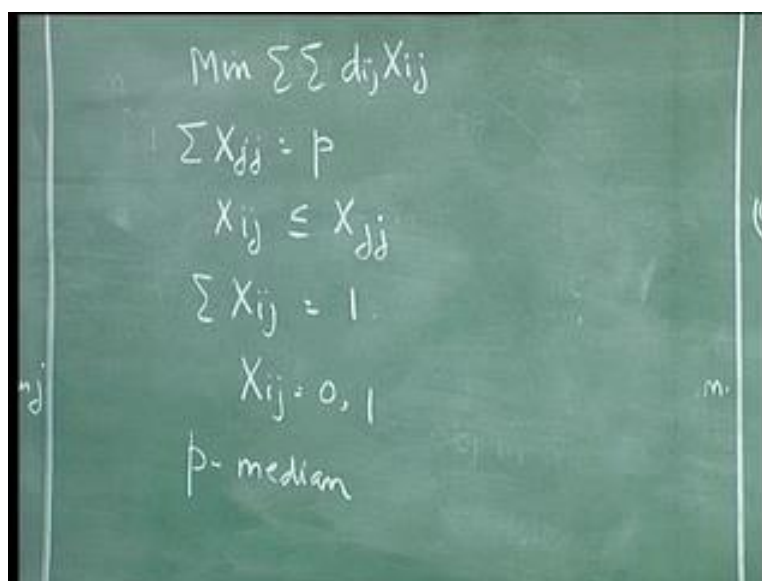 Min ΣΣ dij Xij
Σ Xjj = p
Xij ≤ Xjj
Σ Xij = 1
Xij = 0, 1
p- median
nj
n.